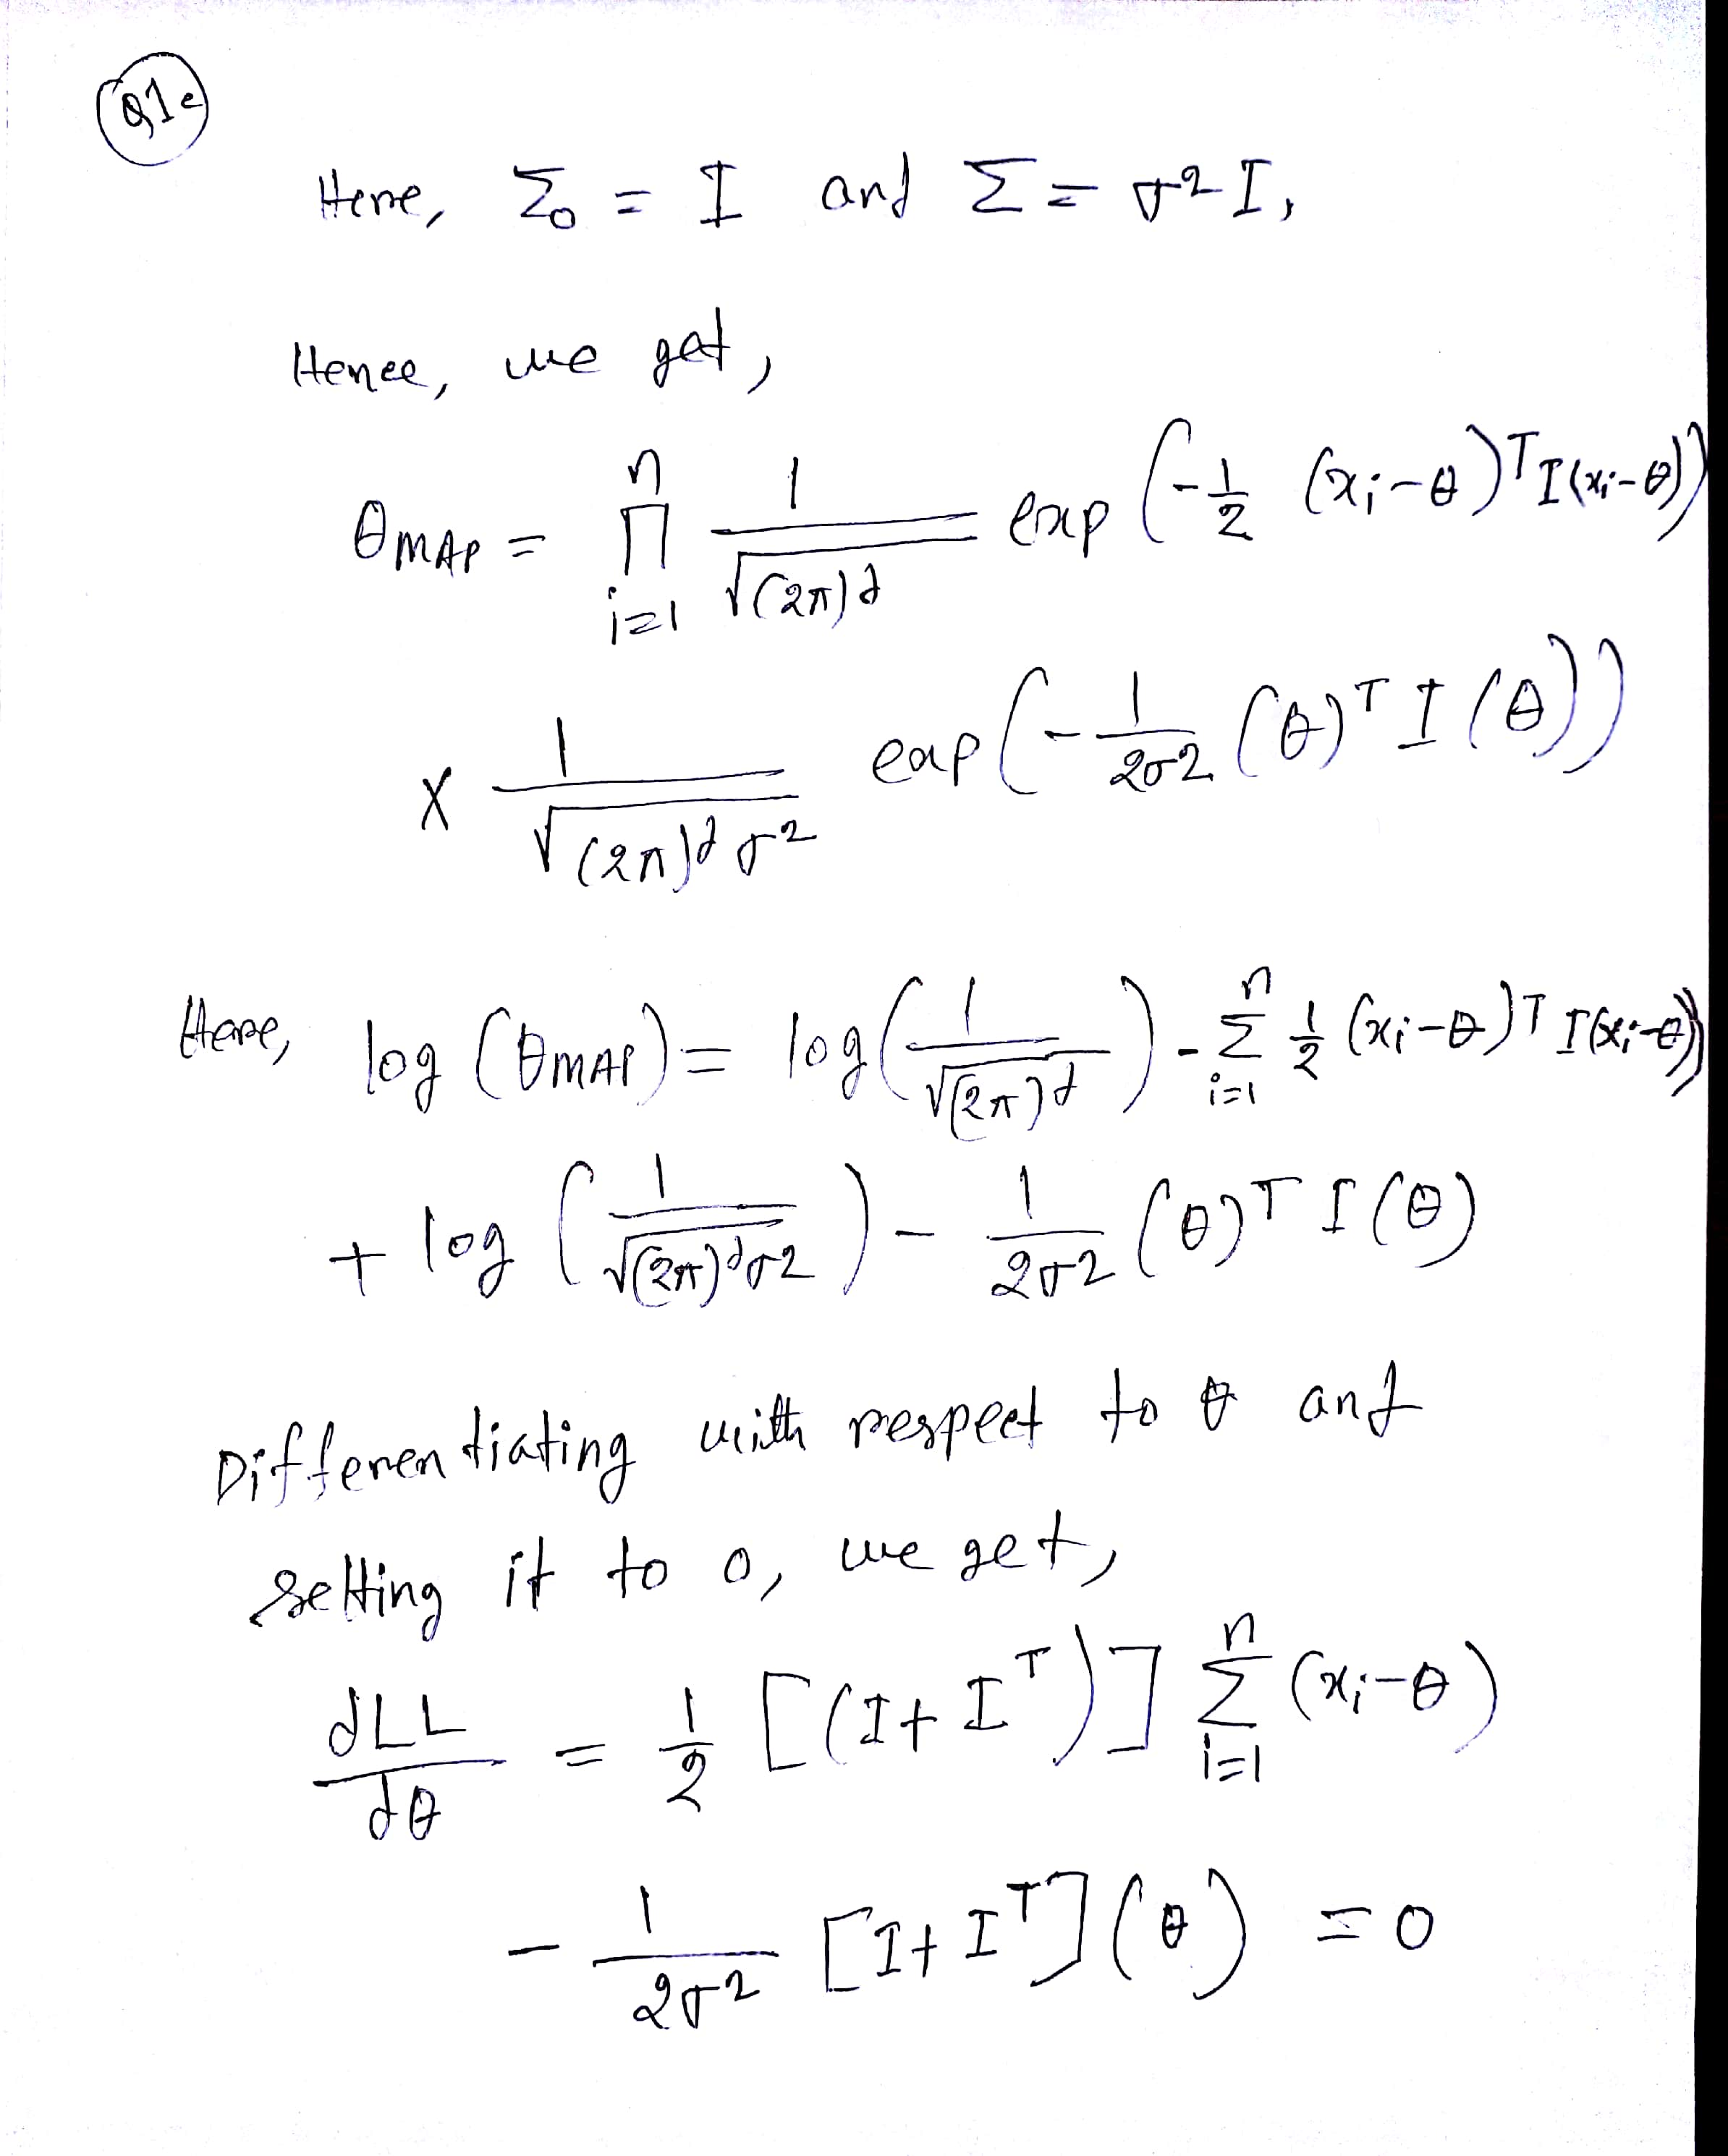 Q1c
Here, Σ₀ = I and Σ = σ² I,
Hence, we get,
θ_MAP = ∏_{i=1}^{n} 1/√((2π)^d) exp (-1/2 (x_i-θ)^T I(x_i-θ))
× 1/√((2π)^d σ²) exp (-1/(2σ²) (θ)^T I (θ))
Here, log (θ_MAP) = log (1/√((2π)^d)) - Σ_{i=1}^{n} 1/2 (x_i-θ)^T I(x_i-θ))
+ log (1/√((2π)^d σ²)) - 1/(2σ²) (θ)^T I (θ)
Differentiating with respect to θ and
setting it to 0, we get,
dLL/dθ = 1/2 [(I + I^T)] Σ_{i=1}^{n} (x_i-θ)
- 1/(2σ²) [I + I^T] (θ) = 0